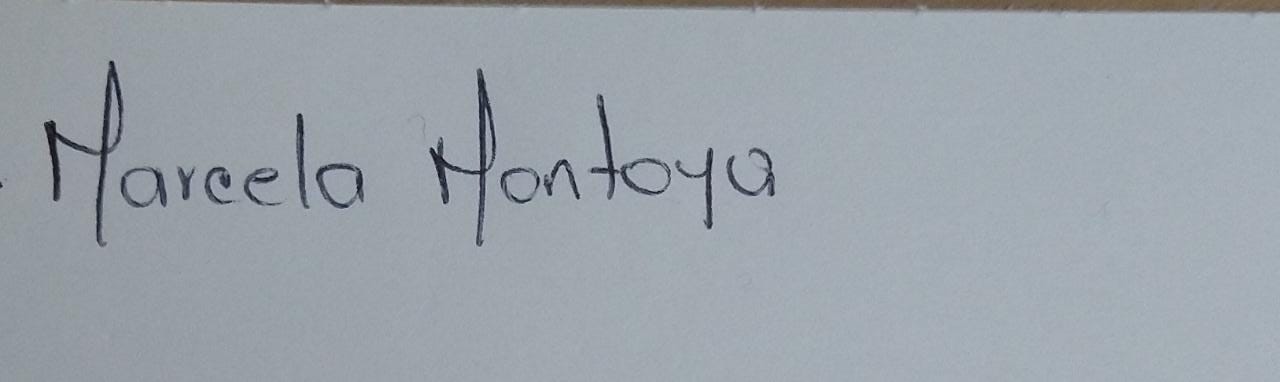 Marcela Montoya